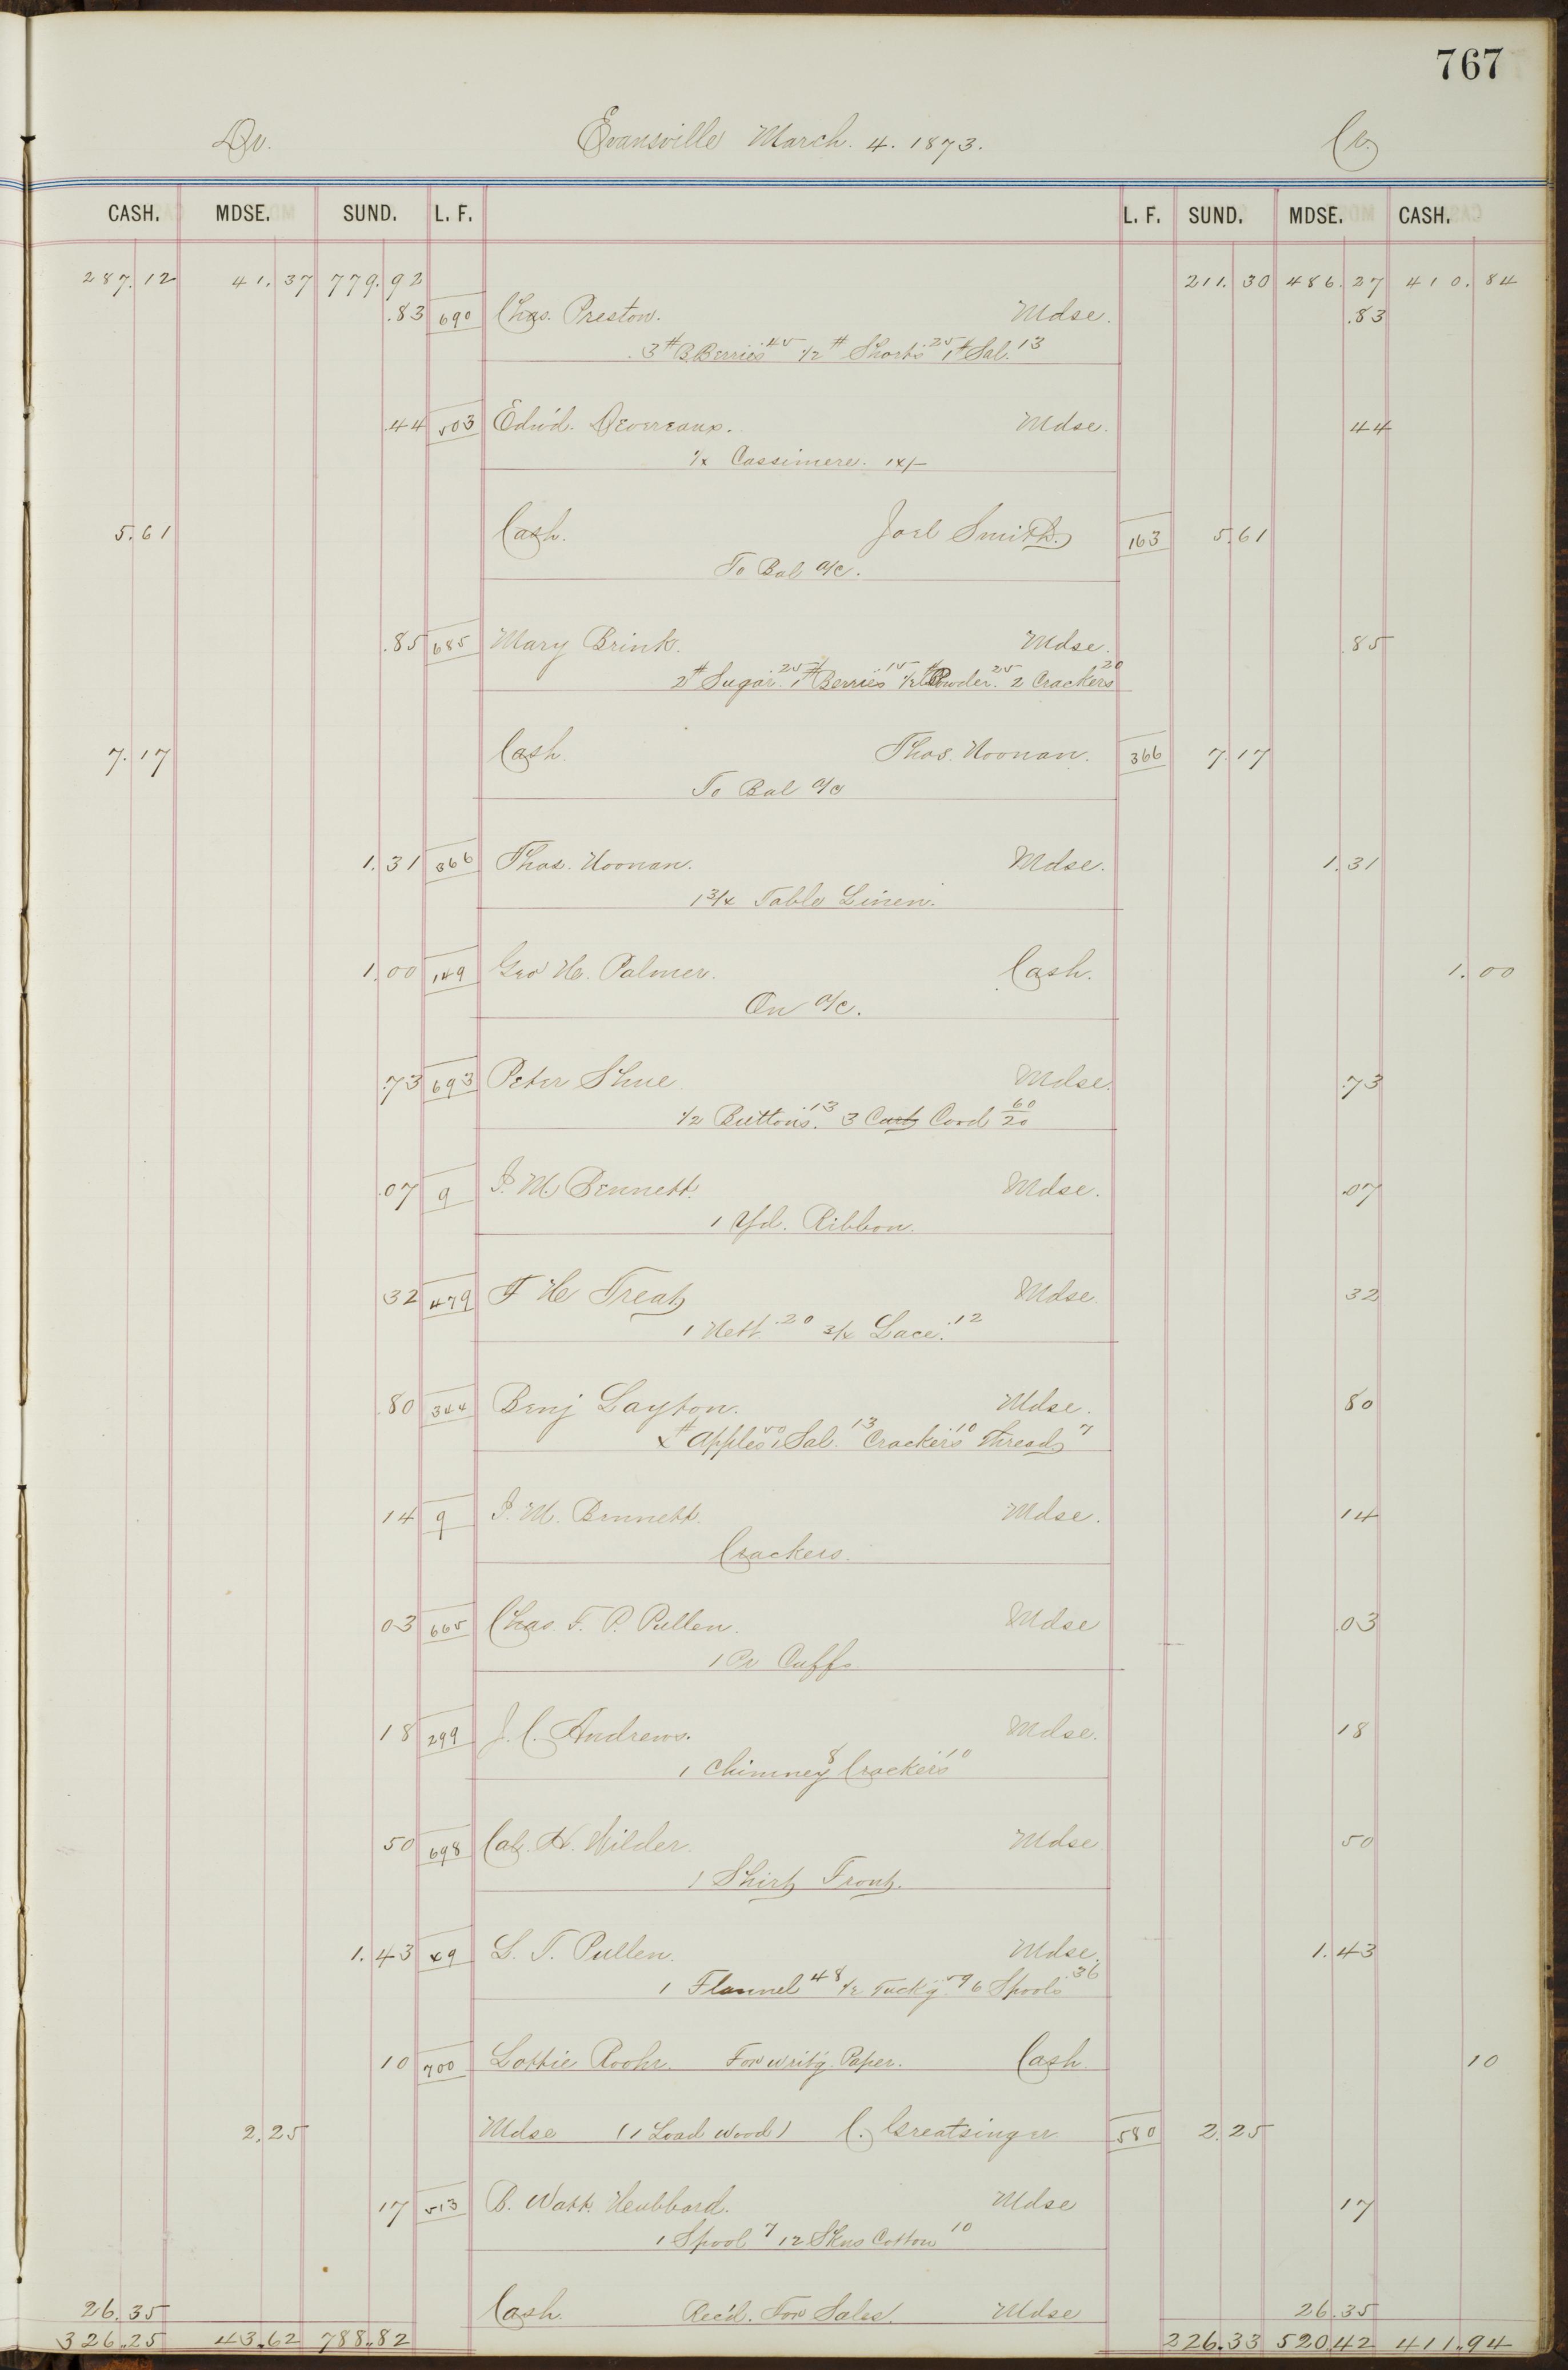 767
Dr. Evansville March. 4. 1873. Cr.
CASH. MDSE. SUND. L. F. L. F. SUND. MDSE. CASH.
287.12 41.37 779.92 211.30 486.27 410.84
.83 690 Chas. Preston. Mdse. .83
3# B.Berries .45 1/2# Shorts .25 1# Sal. 13
.44 503 Edw'd. Devereaux. Mdse. 44
1/4 Cassimere. 14/-
5.61 Cash. Joel Smith. 163 5.61
To Bal a/c.
.85 685 Mary Brink. Mdse. .85
2# Sugar. .25 1# Berries .15 1/2 Powder. 25 2 Crackers 20
7.17 Cash. Thos. Noonan. 366 7.17
To Bal a/c
1.31 366 Thos. Noonan. Mdse. 1.31
1 3/4 Table Linen.
1.00 149 Geo H. Palmer. Cash. 1.00
On a/c.
.73 693 Peter Shue Mdse. .73
1/2 Buttons. .13 3 Cord 60/20
.07 9 I. M. Bennett. Mdse. .07
1 Yd. Ribbon.
32 479 F H Treat Mdse. 32
1 Nett .20 3/4 Lace. .12
.80 344 Benj Layton. Mdse. 80
4# Apples 50 1 Sal. 13 Crackers .10 Thread 7
14 9 I. M. Bennett. Mdse. 14
Crackers.
03 665 Chas. F. P. Pullen. Mdse .03
1 Pr Cuffs
18 299 J. C. Andrews. Mdse. 18
1 Chimney 8 Crackers .10
50 698 Cal. H. Wilder. Mdse 50
1 Shirt Front.
1.43 49 L. T. Pullen. Mdse. 1.43
1 Flannel 48 1/2 Tuck'g .59 6 Spools .36
10 700 Lottie Roohr. For writ'g. Paper. Cash. 10
2.25 Mdse (1 Load Wood) C. Greatsinger 580 2.25
17 513 B. Watt. Hubbard. Mdse 17
1 Spool 7 12 Skns Cotton 10
26.35 Cash. Rec'd. For Sales. Mdse 26.35
326.25 43.62 788.82 226.33 520.42 411.94